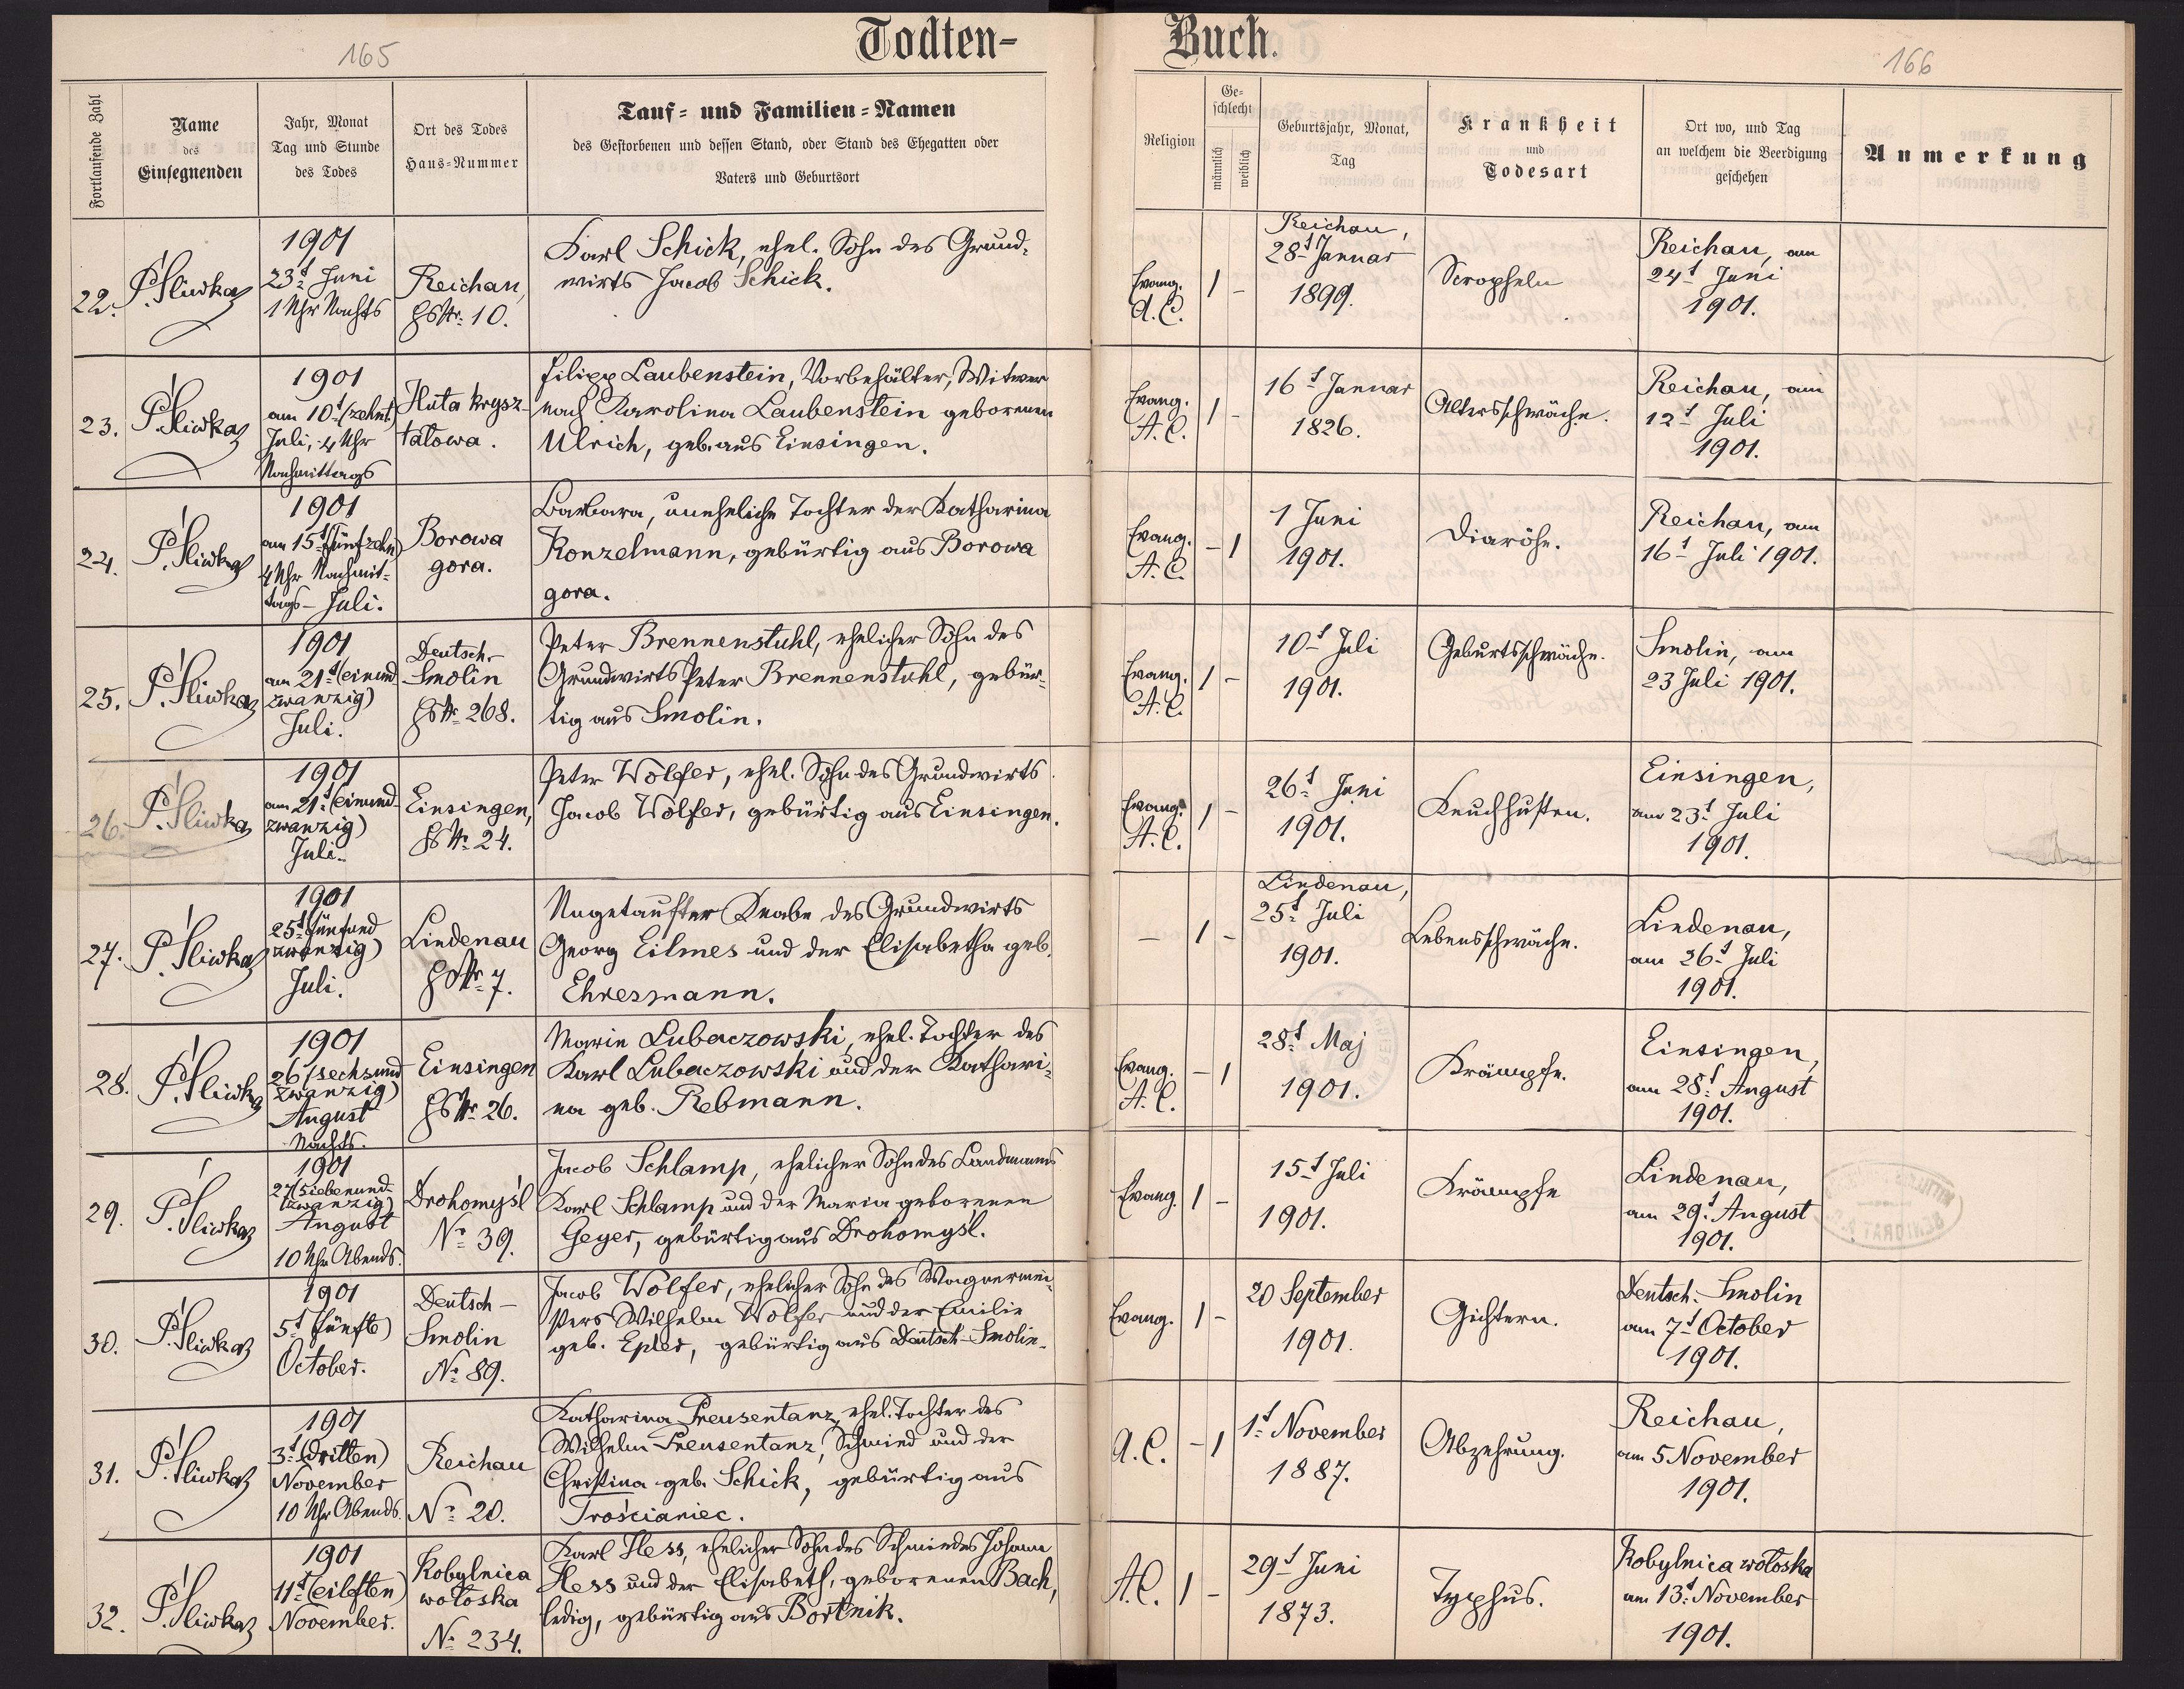 165
Todten-
Buch.
166
Fortlaufende Zahl
Name
des
Einsegnenden
Jahr, Monat
Tag und Stunde
des Todes
Ort des Todes
Haus-Nummer
Tauf- und Familien-Namen
des Gestorbenen und dessen Stand, oder Stand des Ehegatten oder
Vaters und Geburtsort
Religion
Ge-
schlecht
männlich
weiblich
Geburtsjahr, Monat,
Tag
Krankheit
und
Todesart
Ort wo, und Tag
an welchem die Beerdigung
geschehen
Anmerkung
22.
P. Śliwka
1901
23t Juni
1 Uhr Nachts
Reichau,
HsNr. 10.
Karl Schick, ehel. Sohn des Grund-
wirts Jacob Schick.
Evang.
A.C.
1 -
Reichau,
28t Januar
1899.
Scropheln
Reichau, am
24t Juni
1901.
23.
P. Śliwka
1901
am 10t (zehnt)
Juli, 4 Uhr
Nachmittags
Huta krysz-
tałowa.
Filipp Laubenstein, Vorbehälter, Witwer
nach Karolina Laubenstein geborenen
Ulrich, geb. aus Einsingen.
Evang.
A.C.
1 -
16t Januar
1826.
Altersschwäche.
Reichau, am
12t Juli
1901.
24.
P. Śliwka
1901
am 15t (fünfzehn)
4 Uhr Nachmit-
tags - Juli.
Borowa
gora.
Barbara, uneheliche Tochter der Katharina
Konzelmann, gebürtig aus Borowa
gora.
Evang.
A.C.
- 1
1 Juni
1901.
Diaröhe.
Reichau, am
16t Juli 1901.
25.
P. Śliwka
1901
am 21t (einund
zwanzig)
Juli.
Deutsch-
Smolin
HsNr. 268.
Peter Brennenstuhl, ehelicher Sohn des
Grundwirts Peter Brennenstuhl, gebür-
tig aus Smolin.
Evang.
A.C.
1 -
10t Juli
1901.
Geburtsschwäche.
Smolin, am
23 Juli 1901.
26.
P. Śliwka
1901
am 21t (einund-
zwanzig)
Juli.
Einsingen,
HsNr. 24.
Peter Wolfer, ehel. Sohn des Grundwirts
Jacob Wolfer, gebürtig aus Einsingen.
Evang.
A.C.
1 -
26t Juni
1901.
Keuchhusten.
Einsingen,
am 23t Juli
1901.
27.
P. Śliwka
1901
25t (fünfund
zwanzig)
Juli.
Lindenau
HsNr. 7.
Ungetaufter Knabe des Grundwirts
Georg Eilmes und der Elisabetha geb.
Ehresmann.
-
1 -
Lindenau,
25t Juli
1901.
Lebensschwäche.
Lindenau,
am 26t Juli
1901.
28.
P. Śliwka
1901
26 (sechsund
zwanzig)
August
Nachts.
Einsingen
HsNr. 26.
Marie Lubaczowski, ehel. Tochter des
Karl Lubaczowski und der Kathari-
na geb. Rebmann.
Evang.
A.C.
- 1
28t Maj
1901.
Krämpfe.
Einsingen,
am 28t August
1901.
29.
P. Śliwka
1901
27 (siebenund-
zwanzig)
August
10 Uhr Abends.
Drohomyśl
No 39.
Jacob Schlamp, ehelicher Sohn des Landmanns
Karl Schlamp und der Maria geborenen
Geyer, gebürtig aus Drohomyśl.
Evang.
1 -
15t Juli
1901.
Krämpfe
Lindenau,
am 29t August
1901.
30.
P. Śliwka
1901
5t (fünfte)
October.
Deutsch-
Smolin
No 89.
Jacob Wolfer, ehelicher Sohn des Wagnermei-
sters Wilhelm Wolfer und der Emilie
geb. Epler, gebürtig aus Deutsch-Smolin.
Evang.
1 -
20 September
1901.
Gichtern.
Deutsch-Smolin
am 7t October
1901.
31.
P. Śliwka
1901
3t (dritten)
November
10 Uhr Abends.
Reichau
No 20.
Katharina Preusentanz, ehel. Tochter des
Wilhelm Preusentanz, Schmied und der
Christina geb. Schick, gebürtig aus
Trościaniec.
A.C.
- 1
1t November
1887.
Abzehrung.
Reichau,
am 5 November
1901.
32.
P. Śliwka
1901
11t (eilften)
November.
Kobylnica
wołoska
No 234.
Karl Hess, ehelicher Sohn des Schmiedes Johann
Hess und der Elisabeth, geborenen Bach,
ledig, gebürtig aus Bortnik.
A.C.
1 -
29t Juni
1873.
Typhus.
Kobylnica wołoska
am 13t November
1901.